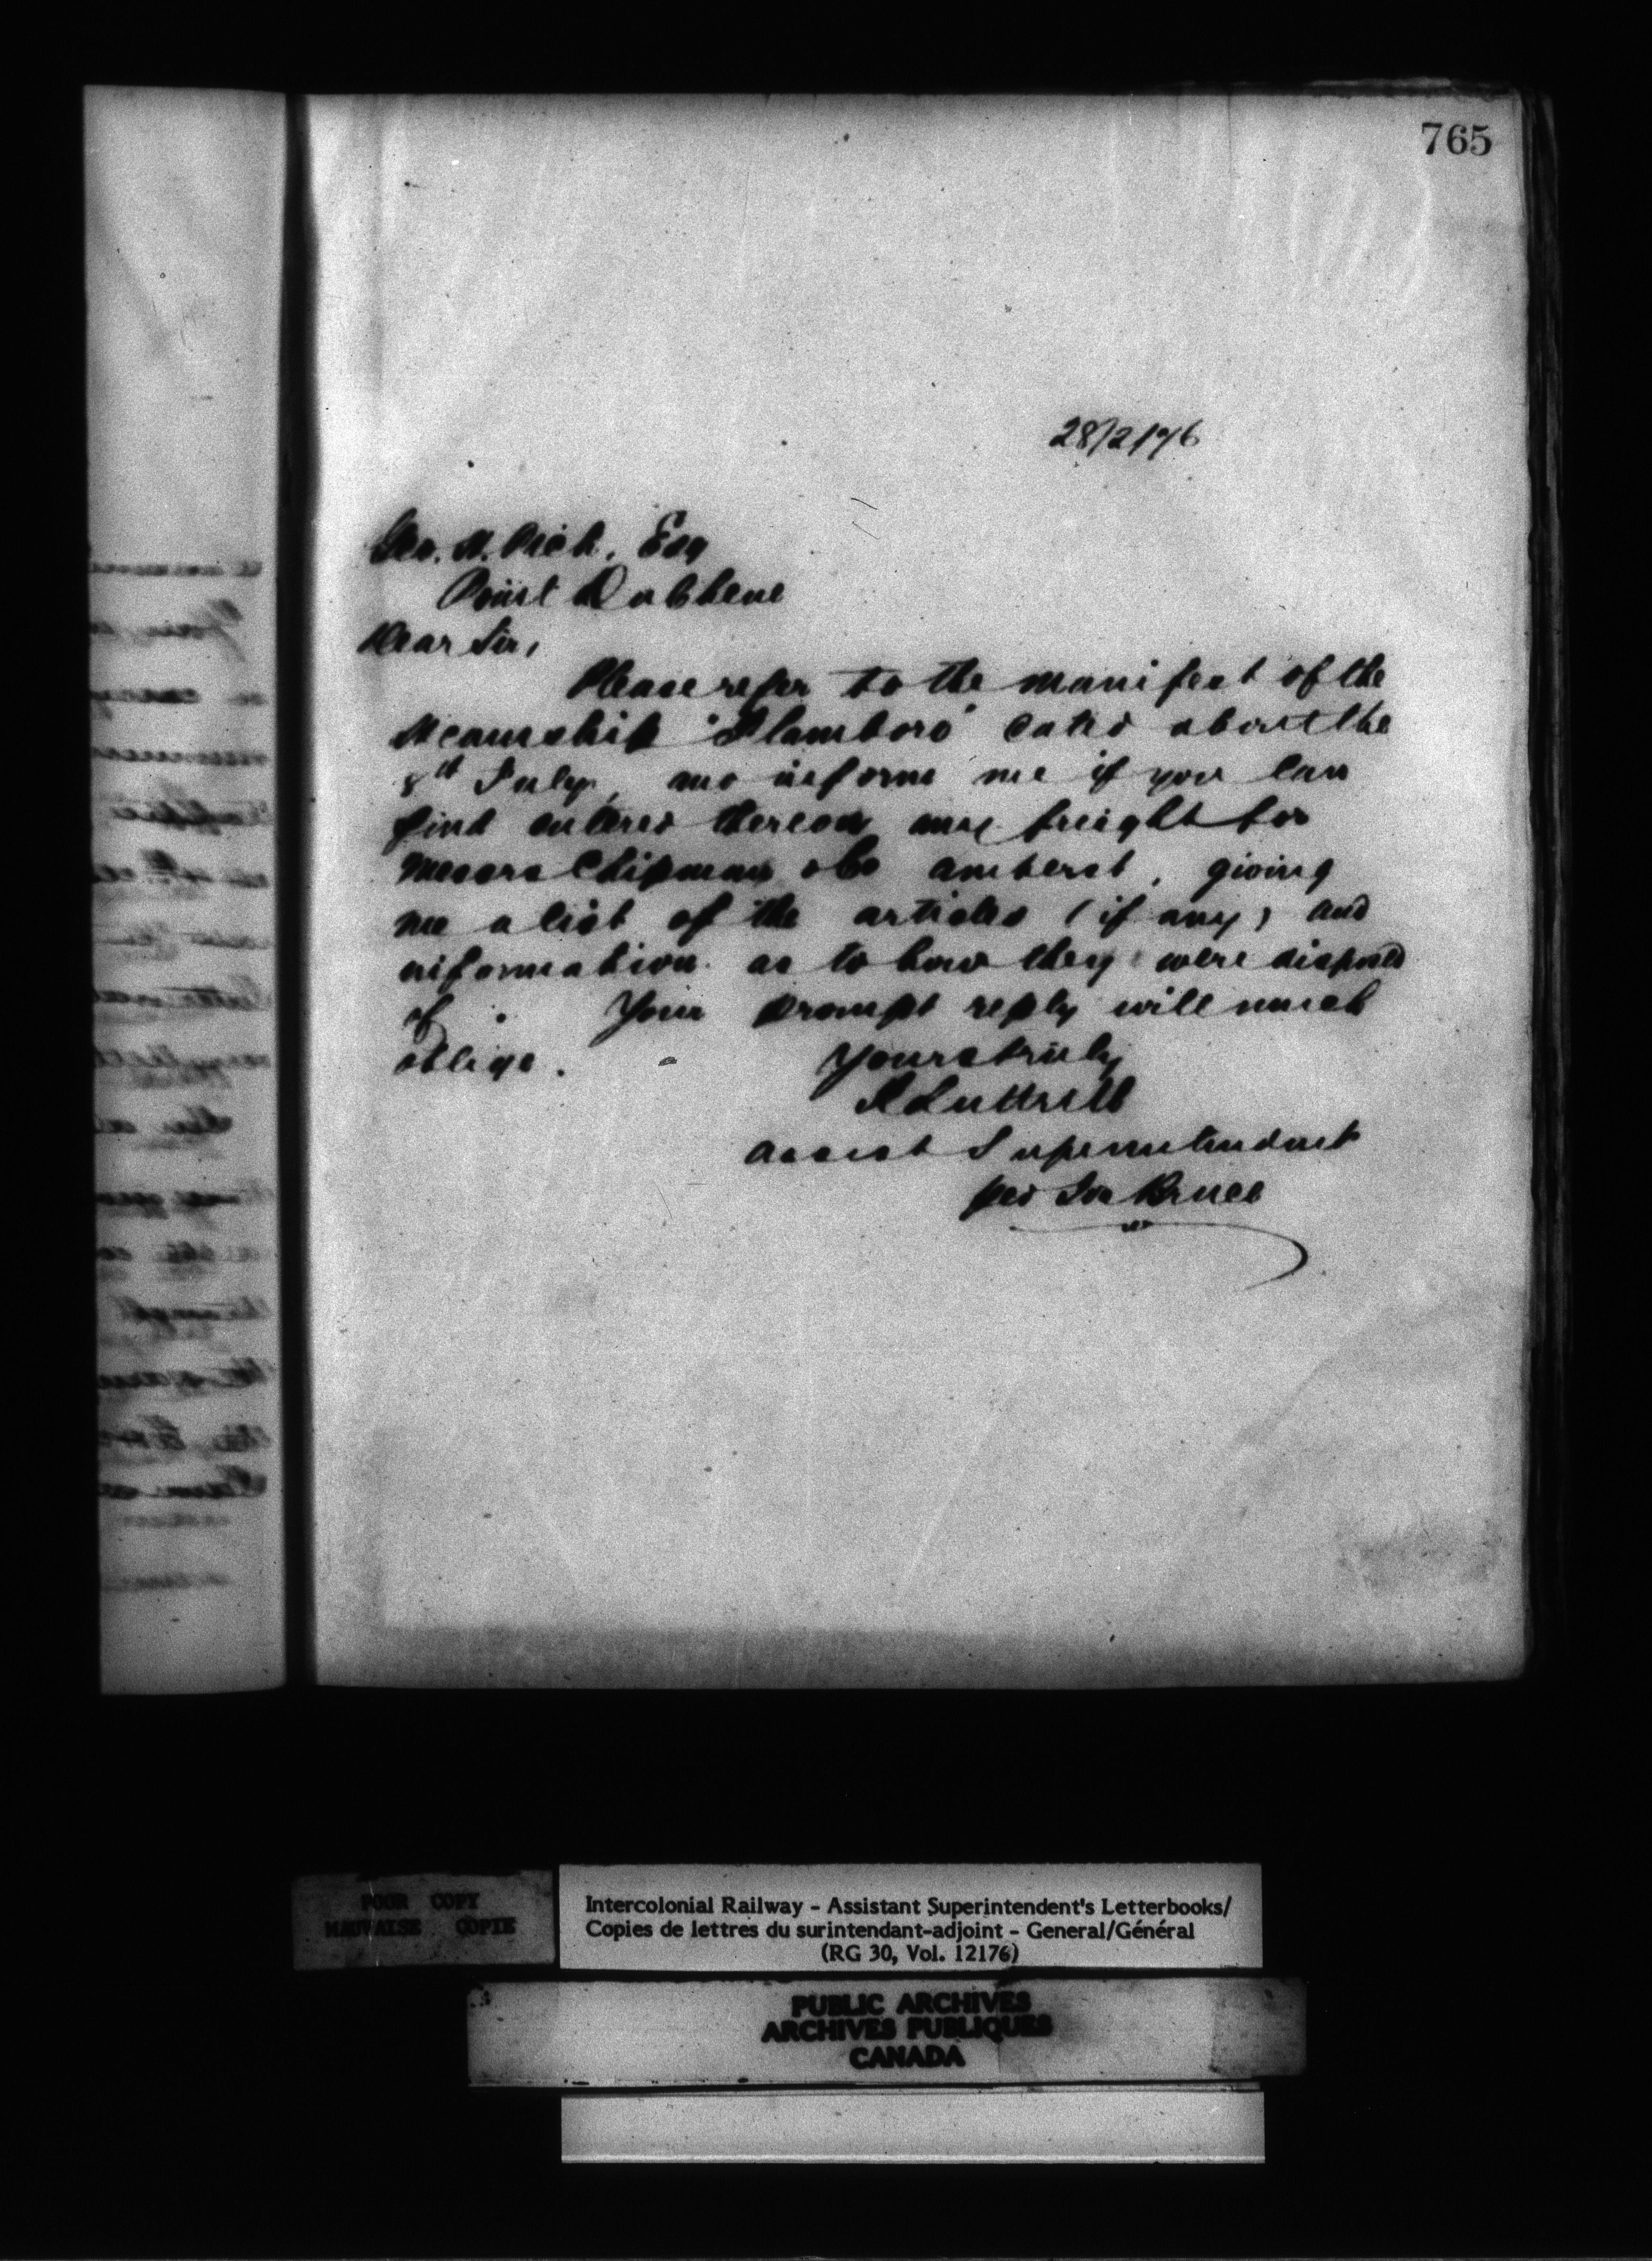 765
28/2/76
Geo. N. Pick, Esq
Point DuChene
Dear Sir,
Please refer to the manifest of the
Steamship "Flamboro" dated about the
8th July, and inform me if you can
find entered thereon any freight for
Messrs Chipman & Co Amherst, giving
me a list of the articles (if any) and
information as to how they were disposed
of. Your prompt reply will much
oblige.
Yours truly
A Luttrell
Assist Superintendent
per Bruce
POOR COPY
MAUVAISE COPIE
Intercolonial Railway - Assistant Superintendent's Letterbooks/
Copies de lettres du surintendant-adjoint - General/Général
(RG 30, Vol. 12176)
PUBLIC ARCHIVES
ARCHIVES PUBLIQUES
CANADA